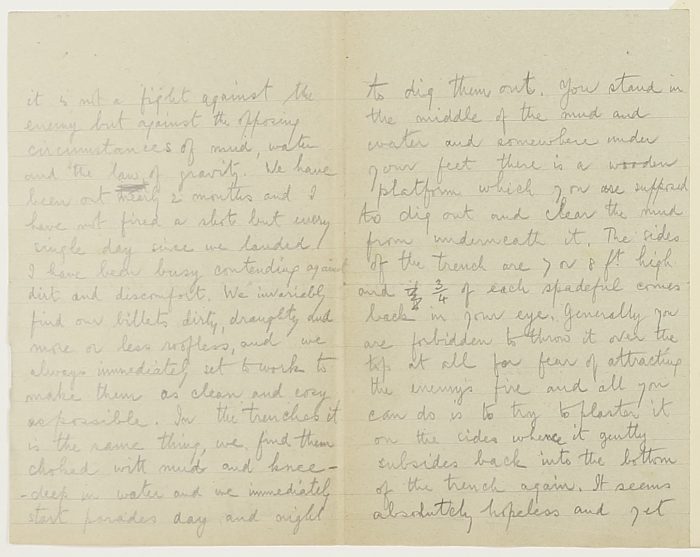 it is not a fight against the
enemy but against the opposing
circumstances of mud, water
and the law of gravity. We have
been out nearly 2 months and I
have not fired a shot but every
single day since we landed
I have been busy contending against
dirt and discomfort. We invariably
find our billets dirty, draughty and
more or less roofless, and we
always immediately set to work to
make them as clean and cosy
as possible. In the trenches it
is the same thing, we find them
choked with mud and knee-
-deep in water and we immediately
start parades day and night
to dig them out. You stand in
the middle of the mud and
water and somewhere under
your feet there is a wooden
platform which you are supposed
to dig out and clear the mud
from underneath it. The sides
of the trench are 7 or 8 ft high
and 3/4 of each spadeful comes
back in your eye. Generally you
are forbidden to throw it over the
top at all for fear of attracting
the enemy's fire and all you
can do is to try to plaster it
on the sides whence it gently
subsides back into the bottom
of the trench again. It seems
absolutely hopeless and yet